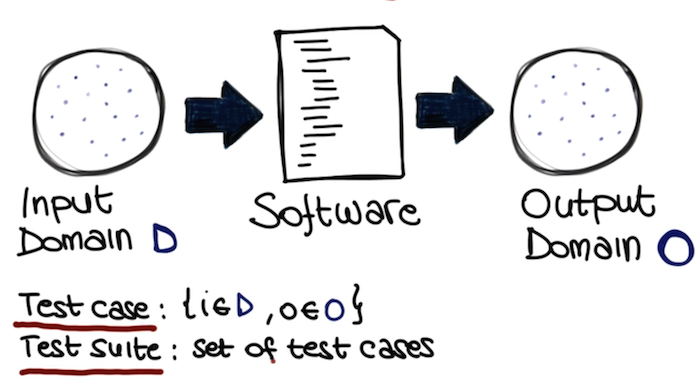 Input
Domain D
Software
Output
Domain O
Test case : {i∈D , o∈O}
Test suite : set of test cases